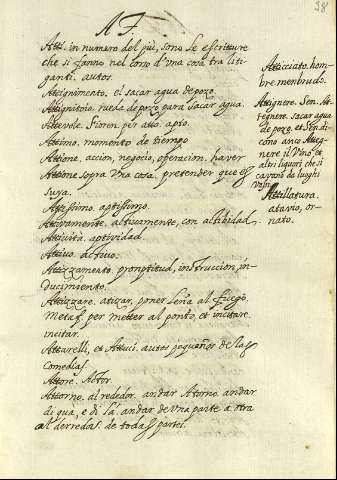 38
A T
Atti. in numero del più, sono le escritture
che si fanno nel corso d'una cosa tra liti
ganti. autos.
Attignimento. el sacar agua de pozo.
Attignitoio. rueda de pozo para sacar agua.
Attevole. Fioren. per atto. apto.
Attimo. momento de tiempo
Attione, accion, negocio, operacion. haver
Attione sopra Una cosa. pretender que es
suya.
Attissimo. aptissimo.
Attivamente. altivamente, con actibidad.
Attività. aptividad.
Attivo. activo.
Attizzamento. promptitud, instruccion, in
ducimiento.
Attizzare. atizar, poner leña al fuego.
Metaf. per metter al ponto, et incitare.
incitar.
Attarelli, et Attuci. autos pequeños de las
Comedias.
Attore. Actor.
Attorno. al rededor. andar Atorno. andar
di quà, e di là. andar de Una parte a otra
al derredor. de todas partes.
Atticciato. hom
bre membrudo.
Attignere. Sen. At
tegnere. Sacar agua
de pozo. et Sen. di
cono anco Attig
nere il Vino, et
altri liquori che si
cavono da luoghi
Vasi.
Attillatura.
atavio, or
nato.